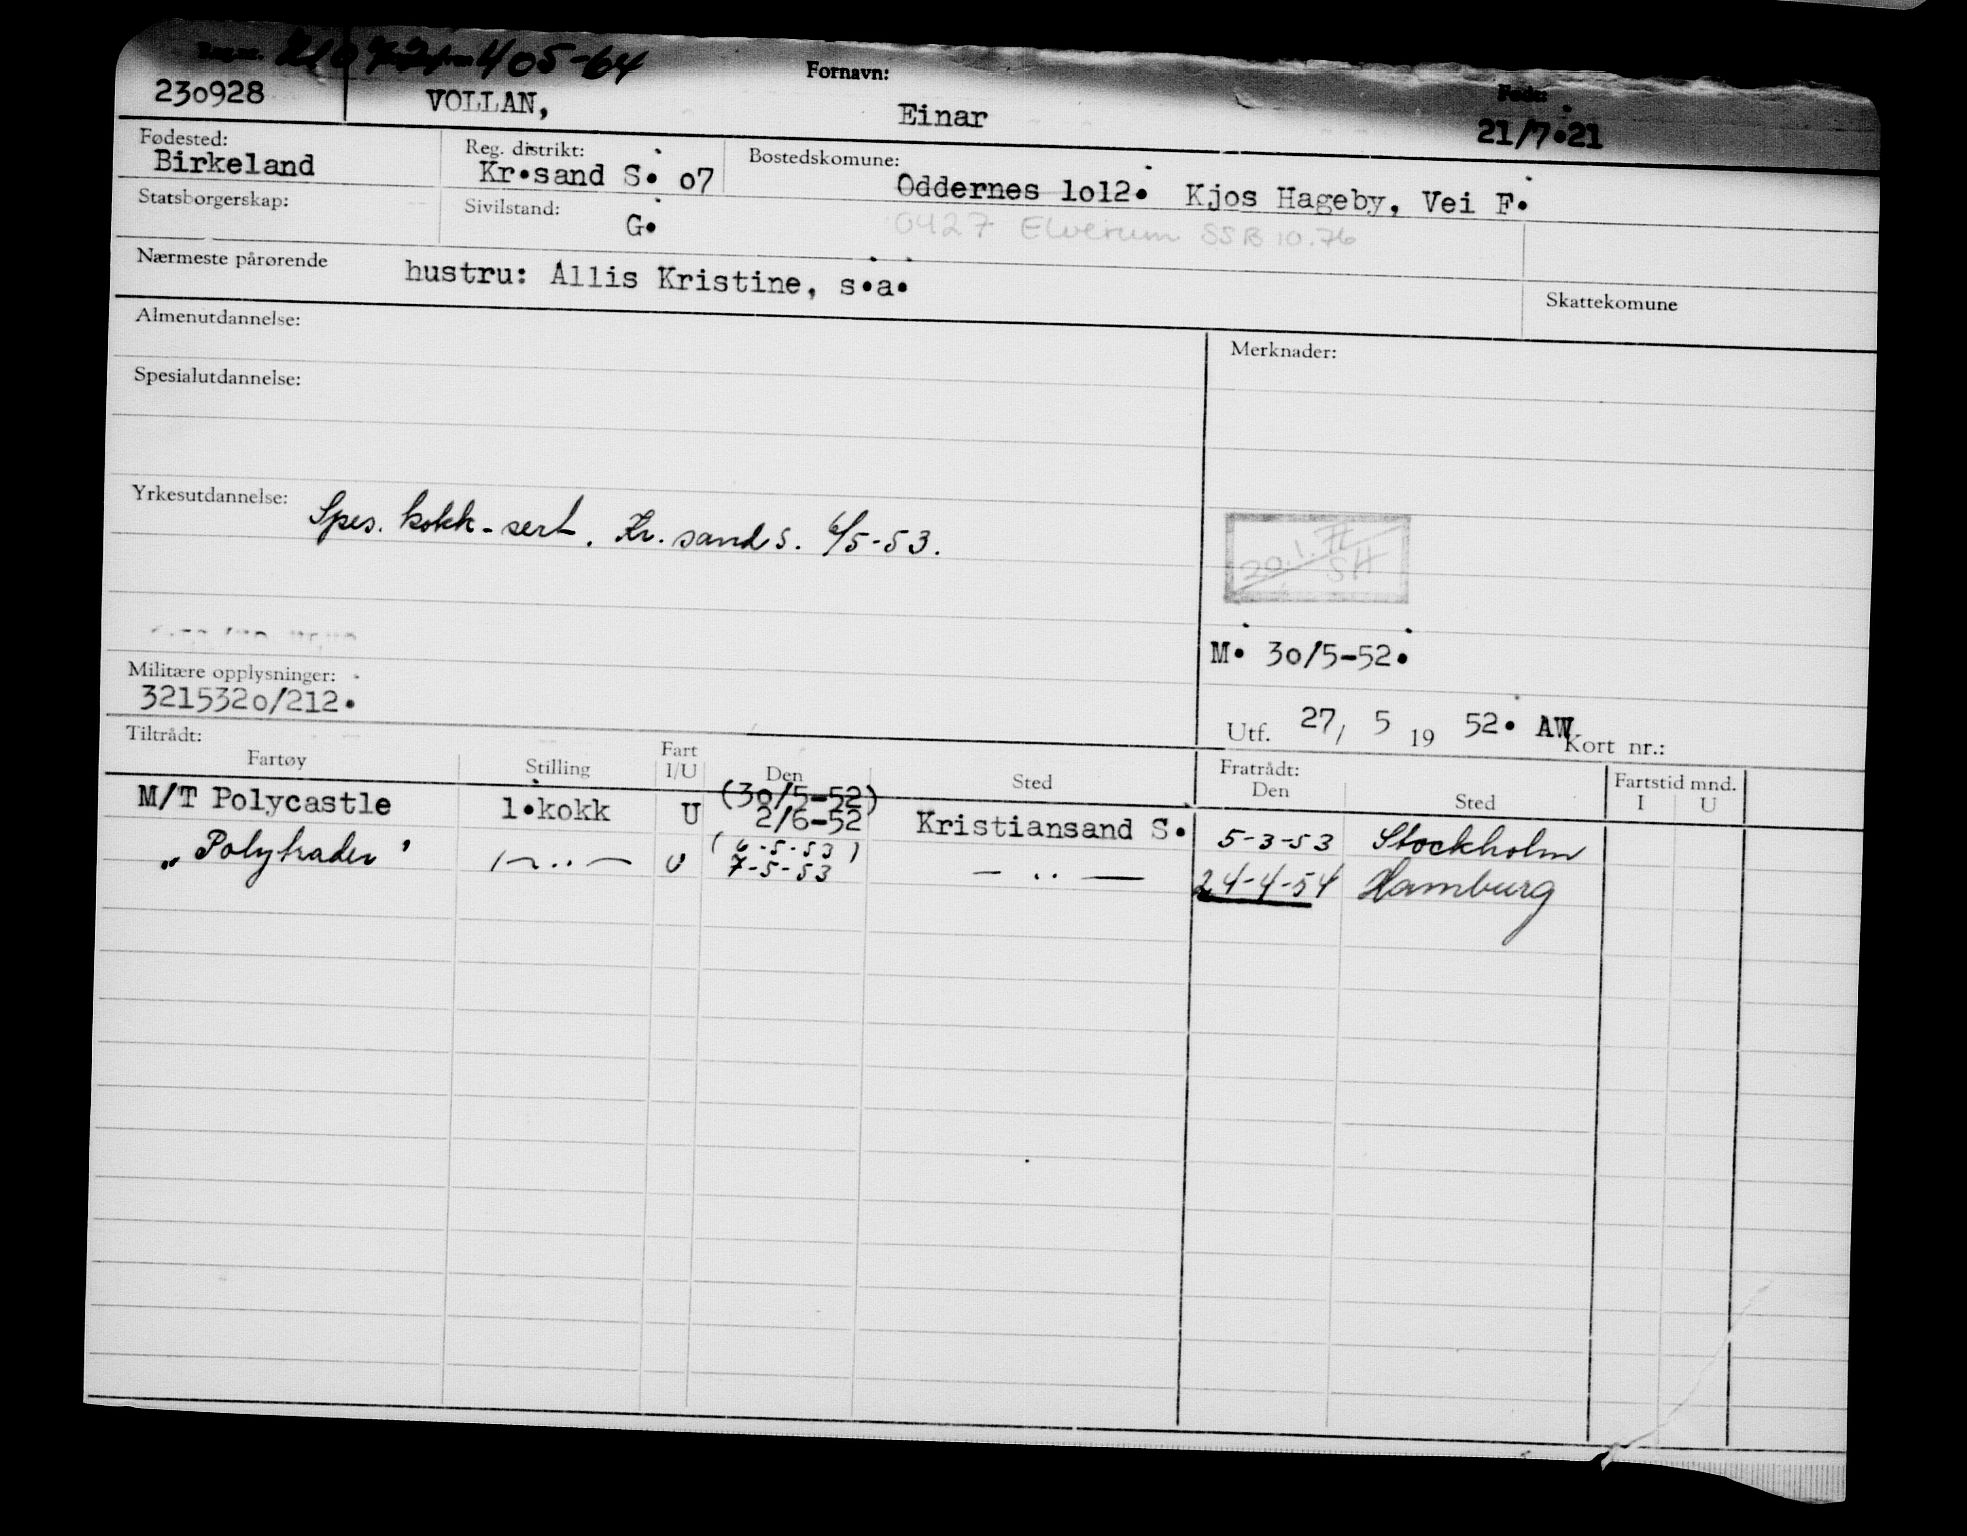 405-64
Fornavn:
230928 VOLLAN, Einar 21/7.21
Fødested: Reg. distrikt: Bostedskomune:
Birkeland Kr.sand S. o7 Oddernes 1o12. Kjos Hageby, Vei F.
Statsborgerskap: Sivilstand: G. 0427 Elverum SSB 10.76
Nærmeste pårørende hustru: Allis Kristine, s.a.
Skattekomune
Almenutdannelse:
Merknader:
Spesialutdannelse:
Yrkesutdannelse: Spes. kokk-sert. Kr. sand S. 6/5-53.
20.1. SH
M. 30/5-52.
Militære opplysninger:
321532o/212.
Utf. 27/ 5 19 52. AW Kort nr.:
Tiltrådt: Fratrådt: Fartstid mnd.
Fartøy Stilling Fart I/U Den Sted Den Sted I U
(30/5-52)
M/T Polycastle 1.kokk U 2/6-52 Kristiansand S. 5-3-53 Stockholm
(6-5-53)
" Polytrader " — " — U 7-5-53 — " — 24-4-54 Hamburg